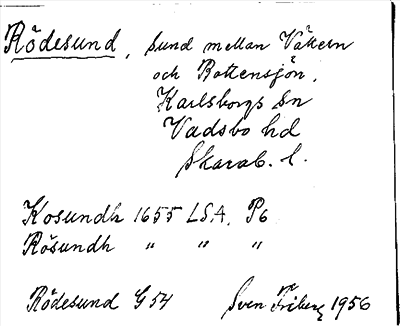 Rödesund, sund mellan Vättern
och Bottensjön,
Karlsborgs sn
Vadsbo hd
Skarab. l.
Kosundh 1655 LSA. P6
Rösundh " " "
Rödesund G 54 Sven Friberg 1956